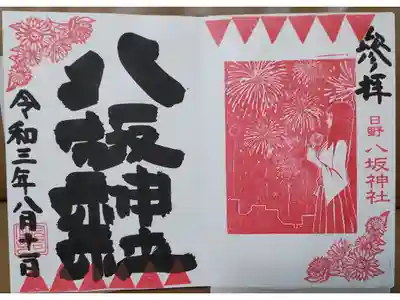 參拝
日野 八坂神社
八坂神社
令和三年八月十一日